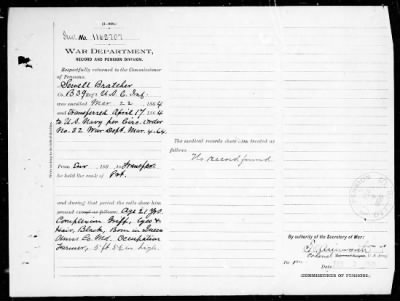 (3-464.)
Inv. No. 1162707
WAR DEPARTMENT,
RECORD AND PENSION DIVISION.
Respectfully returned to the Commissioner
of Pensions.
Sewell Bratcher
Co. B 39 Reg't U.S.C. Inf.
was enrolled Mar. 22, 1864
and transferred April 17, 1864
to U.S. Navy per Gen'l Order
No. 32 War Dept. Mar. 4-64.
From Enr., 186, to transfer
he held the rank of Pvt.
and during that period the rolls show him
present Age 21 yrs.
Complexion Eyes &
Hair, Black, Born in Queen
Annes Co. Md. Occupation
Farmer, 5 ft
The medical records show him treated as
follows:
No record found
By authority of the Secretary of War:
Colonel U.S. Army
Per
Date
COMMISSIONER OF PENSIONS.